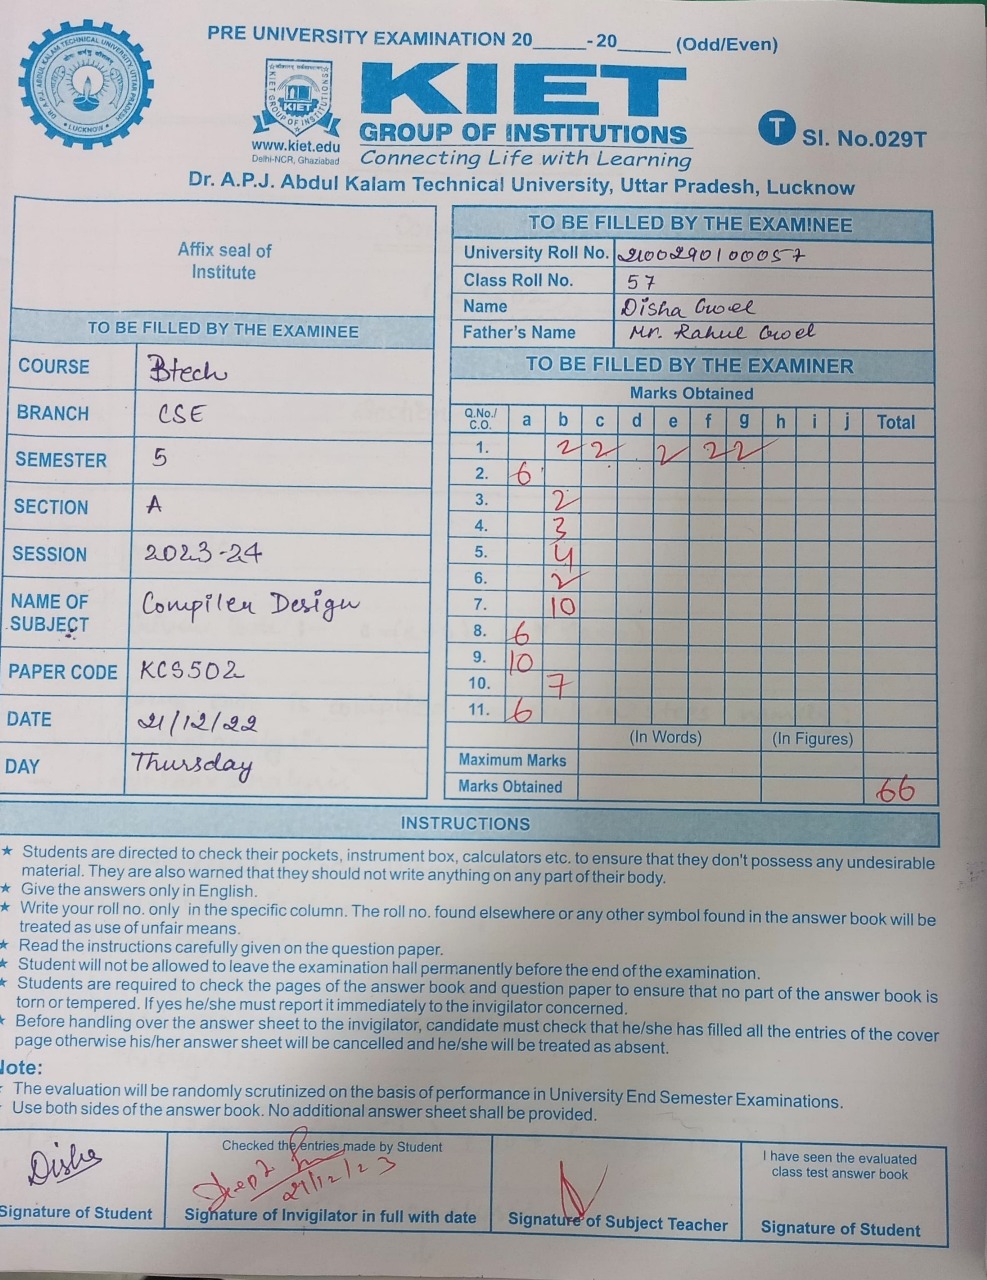 PRE UNIVERSITY EXAMINATION 20____-20____ (Odd/Even)
DR. A.P.J. ABDUL KALAM TECHNICAL UNIVERSITY UTTAR PRADESH
LUCKNOW
KIET GROUP OF INSTITUTIONS
KIET
www.kiet.edu
Delhi-NCR, Ghaziabad
KIET
GROUP OF INSTITUTIONS
Connecting Life with Learning
T Sl. No.029T
Dr. A.P.J. Abdul Kalam Technical University, Uttar Pradesh, Lucknow
Affix seal of
Institute
TO BE FILLED BY THE EXAMINEE
COURSE Btech
BRANCH CSE
SEMESTER 5
SECTION A
SESSION 2023-24
NAME OF
SUBJECT Compiler Design
PAPER CODE KCS502
DATE 21/12/22
DAY Thursday
TO BE FILLED BY THE EXAMINEE
University Roll No. 2100290100057
Class Roll No. 57
Name Disha Goel
Father's Name Mr. Rahul Goel
TO BE FILLED BY THE EXAMINER
Marks Obtained
Q.No./
C.O. a b c d e f g h i j Total
1. 2 2 2 2 2
2. 6
3. 2
4. 3
5. 4
6. 2
7. 10
8. 6
9. 10
10. 7
11. 6
(In Words) (In Figures)
Maximum Marks
Marks Obtained 66
INSTRUCTIONS
★ Students are directed to check their pockets, instrument box, calculators etc. to ensure that they don't possess any undesirable
material. They are also warned that they should not write anything on any part of their body.
★ Give the answers only in English.
★ Write your roll no. only in the specific column. The roll no. found elsewhere or any other symbol found in the answer book will be
treated as use of unfair means.
★ Read the instructions carefully given on the question paper.
★ Student will not be allowed to leave the examination hall permanently before the end of the examination.
★ Students are required to check the pages of the answer book and question paper to ensure that no part of the answer book is
torn or tempered. If yes he/she must report it immediately to the invigilator concerned.
★ Before handling over the answer sheet to the invigilator, candidate must check that he/she has filled all the entries of the cover
page otherwise his/her answer sheet will be cancelled and he/she will be treated as absent.
Note:
The evaluation will be randomly scrutinized on the basis of performance in University End Semester Examinations.
Use both sides of the answer book. No additional answer sheet shall be provided.
Disha
Signature of Student
Checked the entries made by Student
21/12/23
Signature of Invigilator in full with date
Signature of Subject Teacher
I have seen the evaluated
class test answer book
Signature of Student